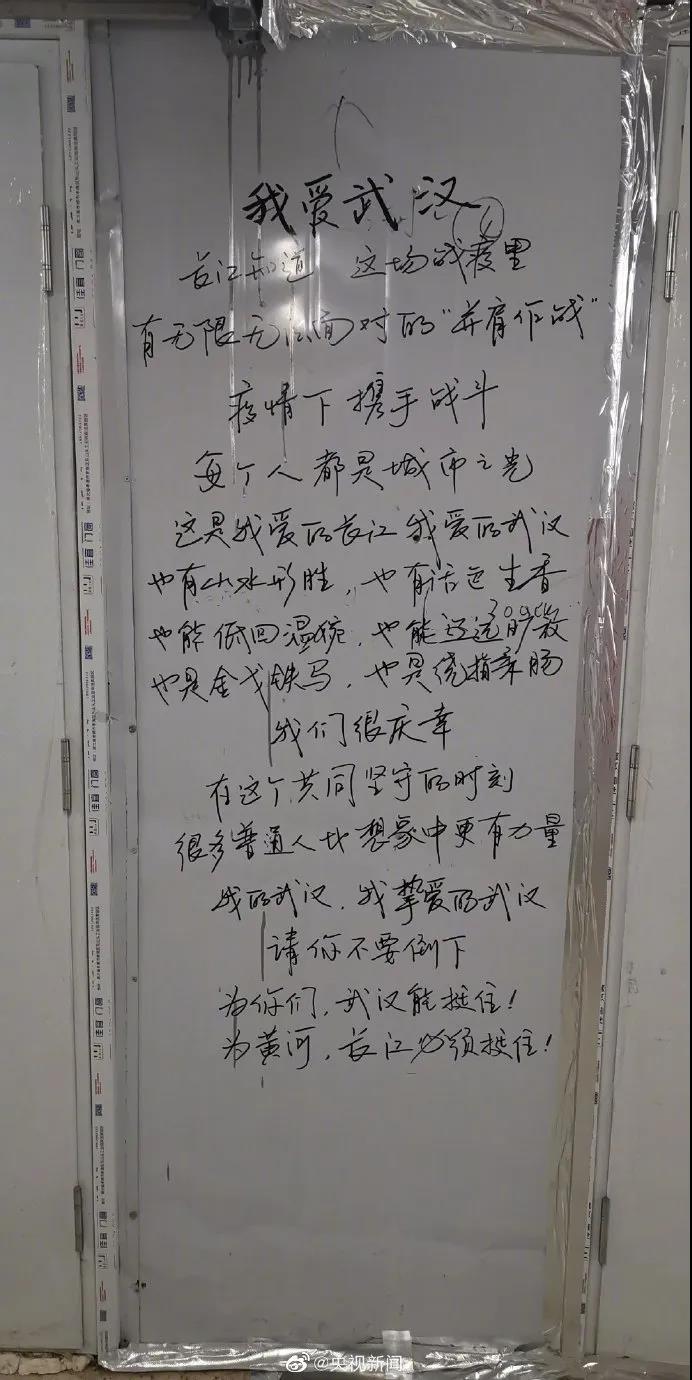 我爱武汉
长江知道 这场战疫里
有无限无法面对的"并肩作战"
疫情下携手战斗
每个人都是城市之光
这是我爱的长江 我爱的武汉
也有山水形胜，也有活色生香
也能低回温婉，也能
也是金戈铁马，也是绕指柔肠
我们很庆幸
在这个共同坚守的时刻
很多普通人比想象中更有力量
我的武汉，我挚爱的武汉
请你不要倒下
为你们，武汉能挺住！
为黄河，长江必须挺住！
佳音门窗
@央视新闻